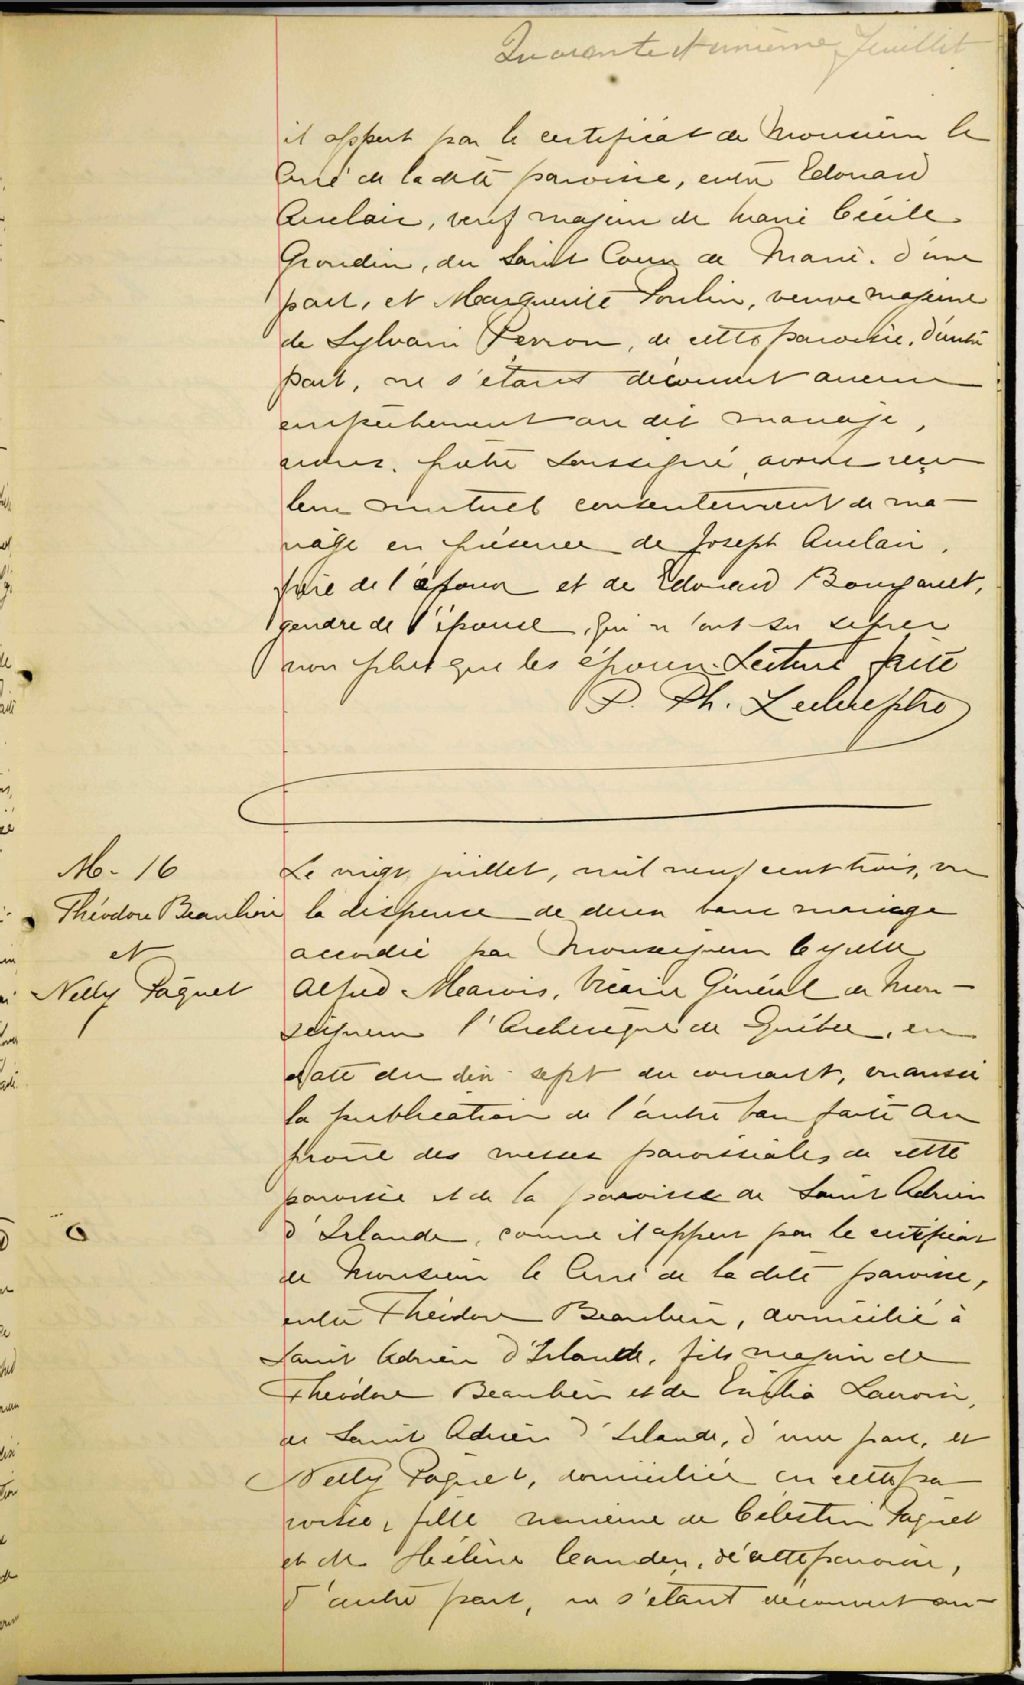 Quarante et unième feuillet
il appert par le certificat de Monsieur le
Curé de la dite paroisse, entre Edouard
Auclair, veuf majeur de Marie Cécile
Grondin, du Saint Coeur de Marie. d'une
part, et Marguerite Poulin, veuve majeure
de Sylvain Perron, de cette paroisse, d'autre
part, ne s'étant découvert aucun
empêchement au dit mariage,
nous. prêtre soussigné, avons reçu
leur mutuel consentement de ma-
riage en présence de Joseph Auclair,
frère de l'époux et de Edouard Bourgault,
gendre de l'épouse, qui n'ont su signer
non plus que les époux. Lecture faite
P. Ph.
M- 16
Théodore Beaulieu
et
Nelly Pâquet
Le vingt juillet, mil neuf cent trois, vu
la dispense de deux bans mariage
accordée par Monseigneur Cyrille
Alfred Marois, Vicaire Général de Mon-
seigneur l'Archevêque de Québec, en
date du dix-sept du courant, vu aussi
la publication de l'autre ban faite au
prône des messes paroissiales de cette
paroisse et de la paroisse de Saint Adrien
d'Irlande, comme il appert par le certificat
de Monsieur le Curé de la dite paroisse,
entre Théodore Beaulieu, domicilié à
Saint Adrien d'Irlande, fils majeur de
Théodore Beaulieu et de Emilia Lacroix,
de Saint Adrien d'Irlande, d'une part, et
Nelly Pâquet, domiciliée en cette pa
roisse, fille mineure de Célestin Pâquet
et de Hélène de cette paroisse,
d'autre part, ne s'étant découvert au-